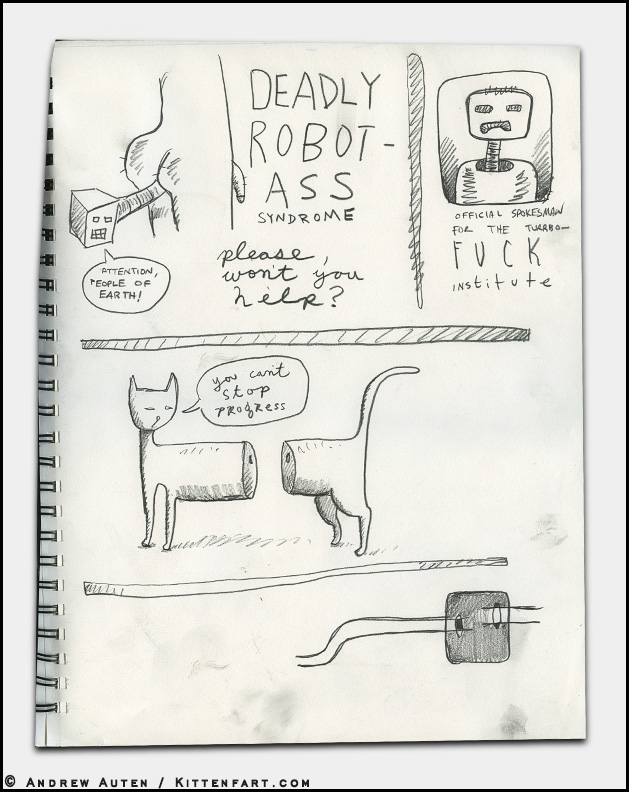 DEADLY
ROBOT-
ASS
SYNDROME
please,
won't you
help?
ATTENTION,
PEOPLE OF
EARTH!
OFFICIAL SPOKESMAN
FOR THE TURRBO-
FUCK
institute
you can't
stop
progress
© ANDREW AUTEN / KITTENFART.COM